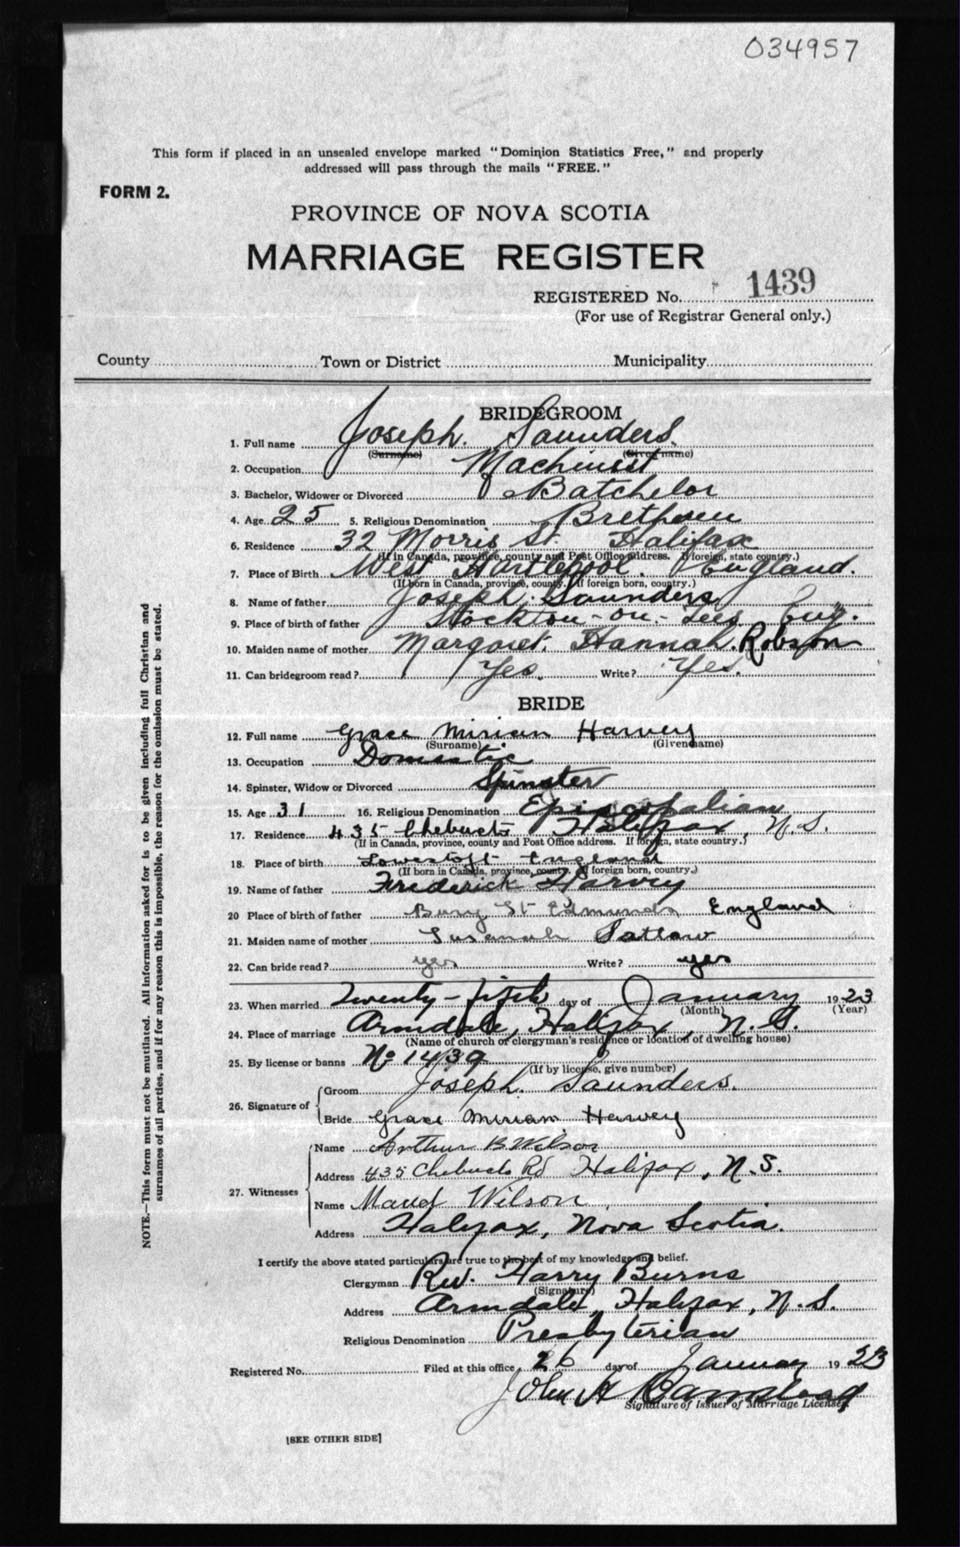 034957
This form if placed in an unsealed envelope marked "Dominion Statistics Free," and properly
addressed will pass through the mails "FREE."
FORM 2.
PROVINCE OF NOVA SCOTIA
MARRIAGE REGISTER
REGISTERED No. 1439
(For use of Registrar General only.)
County Town or District Municipality
BRIDEGROOM
1. Full name Joseph. Saunders.
(Surname) (Given name)
2. Occupation Machinist
3. Bachelor, Widower or Divorced Batchelor
4. Age 25 5. Religious Denomination Brethren
6. Residence 32 Morris St. Halifax
(If in Canada, province, county and Post Office address. If foreign, state country.)
7. Place of Birth West Hartlepool. England.
(If born in Canada, province, county. If foreign born, country.)
8. Name of father Joseph. Saunders
9. Place of birth of father Stockton-on-Tees Eng.
10. Maiden name of mother Margaret. Hannah. Robson
11. Can bridegroom read? Yes. Write? Yes.
BRIDE
12. Full name Grace Miriam Harvey
(Surname) (Given name)
13. Occupation Domestic
14. Spinster, Widow or Divorced Spinster
15. Age 31 16. Religious Denomination Episcopalian
17. Residence 435 Chebucto Halifax, N.S.
(If in Canada, province, county and Post Office address. If foreign, state country.)
18. Place of birth Lowestoft England
(If born in Canada, province, county. If foreign born, country.)
19. Name of father Frederick Harvey
20 Place of birth of father Bury St Edmunds England
21. Maiden name of mother Susannah
22. Can bride read? yes Write? yes
23. When married Twenty-fifth day of January 1923
(Month) (Year)
24. Place of marriage Armdale, Halifax, N.S.
(Name of church or clergyman's residence or location of dwelling house)
25. By license or banns No 1439
(If by license, give number)
26. Signature of Groom Joseph. Saunders.
Bride Grace Miriam Harvey
27. Witnesses Name Arthur B Wilson
Address 435 Chebucto Rd Halifax, N.S.
Name Maud Wilson
Address Halifax, Nova Scotia.
I certify the above stated particulars are true to the best of my knowledge and belief.
Clergyman Rev. Harry Burns
(Signature)
Address Armdale, Halifax, N.S.
Religious Denomination Presbyterian
Registered No. Filed at this office 26 day of January 1923
John A Barnstead
Signature of Issuer of Marriage Licenses
[SEE OTHER SIDE]
NOTE.—This form must not be mutilated. All information asked for is to be given including full Christian and
surnames of all parties, and if for any reason this is impossible, the reason for the omission must be stated.